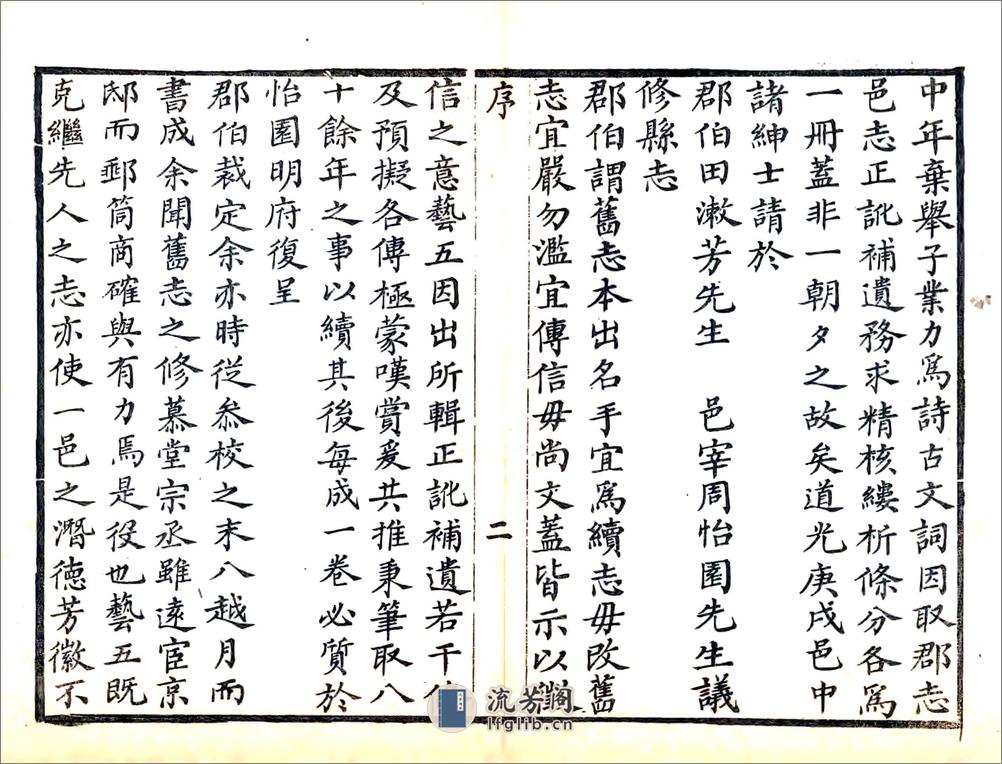 中年棄舉子業力爲詩古文詞因取郡志
邑志正訛補遺務求精核縷析條分各爲
一冊蓋非一朝夕之故矣道光庚戌邑中
諸紳士請於
郡伯田漱芳先生 邑宰周怡園先生議
修縣志
郡伯謂舊志本出名手宜爲續志毋改舊
志宜嚴勿濫宜傳信毋尚文蓋皆示以
序
二
信之意藝五因出所輯正訛補遺若干
及預擬各傳極蒙嘆賞爰共推秉筆取八
十餘年之事以續其後每成一卷必質於
怡園明府復呈
郡伯裁定余亦時從叅校之末八越月而
書成余聞舊志之修慕堂宗丞雖遠宦京
邸而郵筒商確與有力焉是役也藝五既
克繼先人之志亦使一邑之潛德芳徽不
流芳閣
lfglib.cn